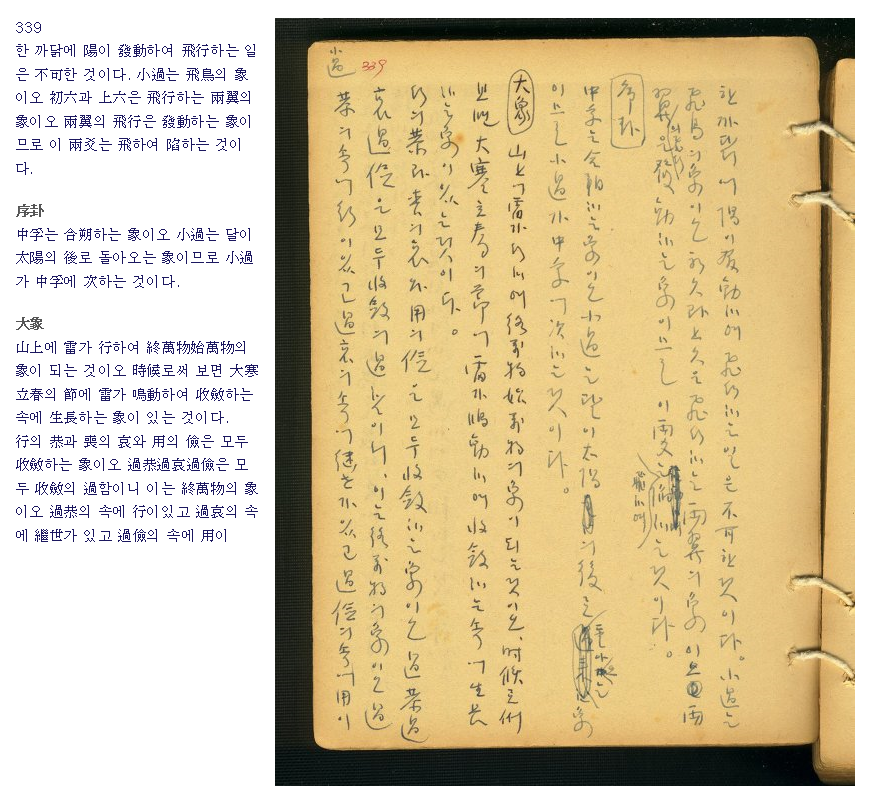 339
한 까닭에 陽이 發動하여 飛行하는 일
은 不可한 것이다. 小過는 飛鳥의 象
이오 初六과 上六은 飛行하는 兩翼의
象이오 兩翼의 飛行은 發動하는 象이
므로 이 兩爻는 飛하여 陷하는 것이
다.
序卦
中孚는 合朔하는 象이오 小過는 달이
太陽의 後로 돌아오는 象이므로 小過
가 中孚에 次하는 것이다.
大象
山上에 雷가 行하여 終萬物始萬物의
象이 되는 것이오 時候로써 보면 大寒
立春의 節에 雷가 鳴動하여 收斂하는
속에 生長하는 象이 있는 것이다.
行의 恭과 喪의 哀와 用의 儉은 모두
收斂하는 象이오 過恭過哀過儉은 모
두 收斂의 過함이니 이는 終萬物의 象
이오 過恭의 속에 行이있고 過哀의 속
에 繼世가 있고 過儉의 속에 用이
小過
339
한 까닭에 陽이 發動하여 飛行하는 일은 不可한 것이다. 小過는
飛鳥의 象이오 初六과 上六은 飛行하는 兩翼의 象이오 兩
翼의 飛行은 發動하는 象이므로 이 兩爻는 飛하여 陷하는 것이다.
序卦
中孚는 合朔하는 象이오 小過는 달이 太陽의 後로 돌아오는 象
이므로 小過가 中孚에 次하는 것이다.
大象 山上에 雷가 行하여 終萬物始萬物의 象이 되는 것이오, 時候로써
보면 大寒立春의 節에 雷가 鳴動하여 收斂하는 속에 生長
하는 象이 있는 것이다.
行의 恭과 喪의 哀와 用의 儉은 모두 收斂하는 象이오 過恭過
哀過儉은 모두 收斂의 過함이니, 이는 終萬物의 象이오 過
恭의 속에 行이 있고 過哀의 속에 繼世가 있고 過儉의 속에 用이